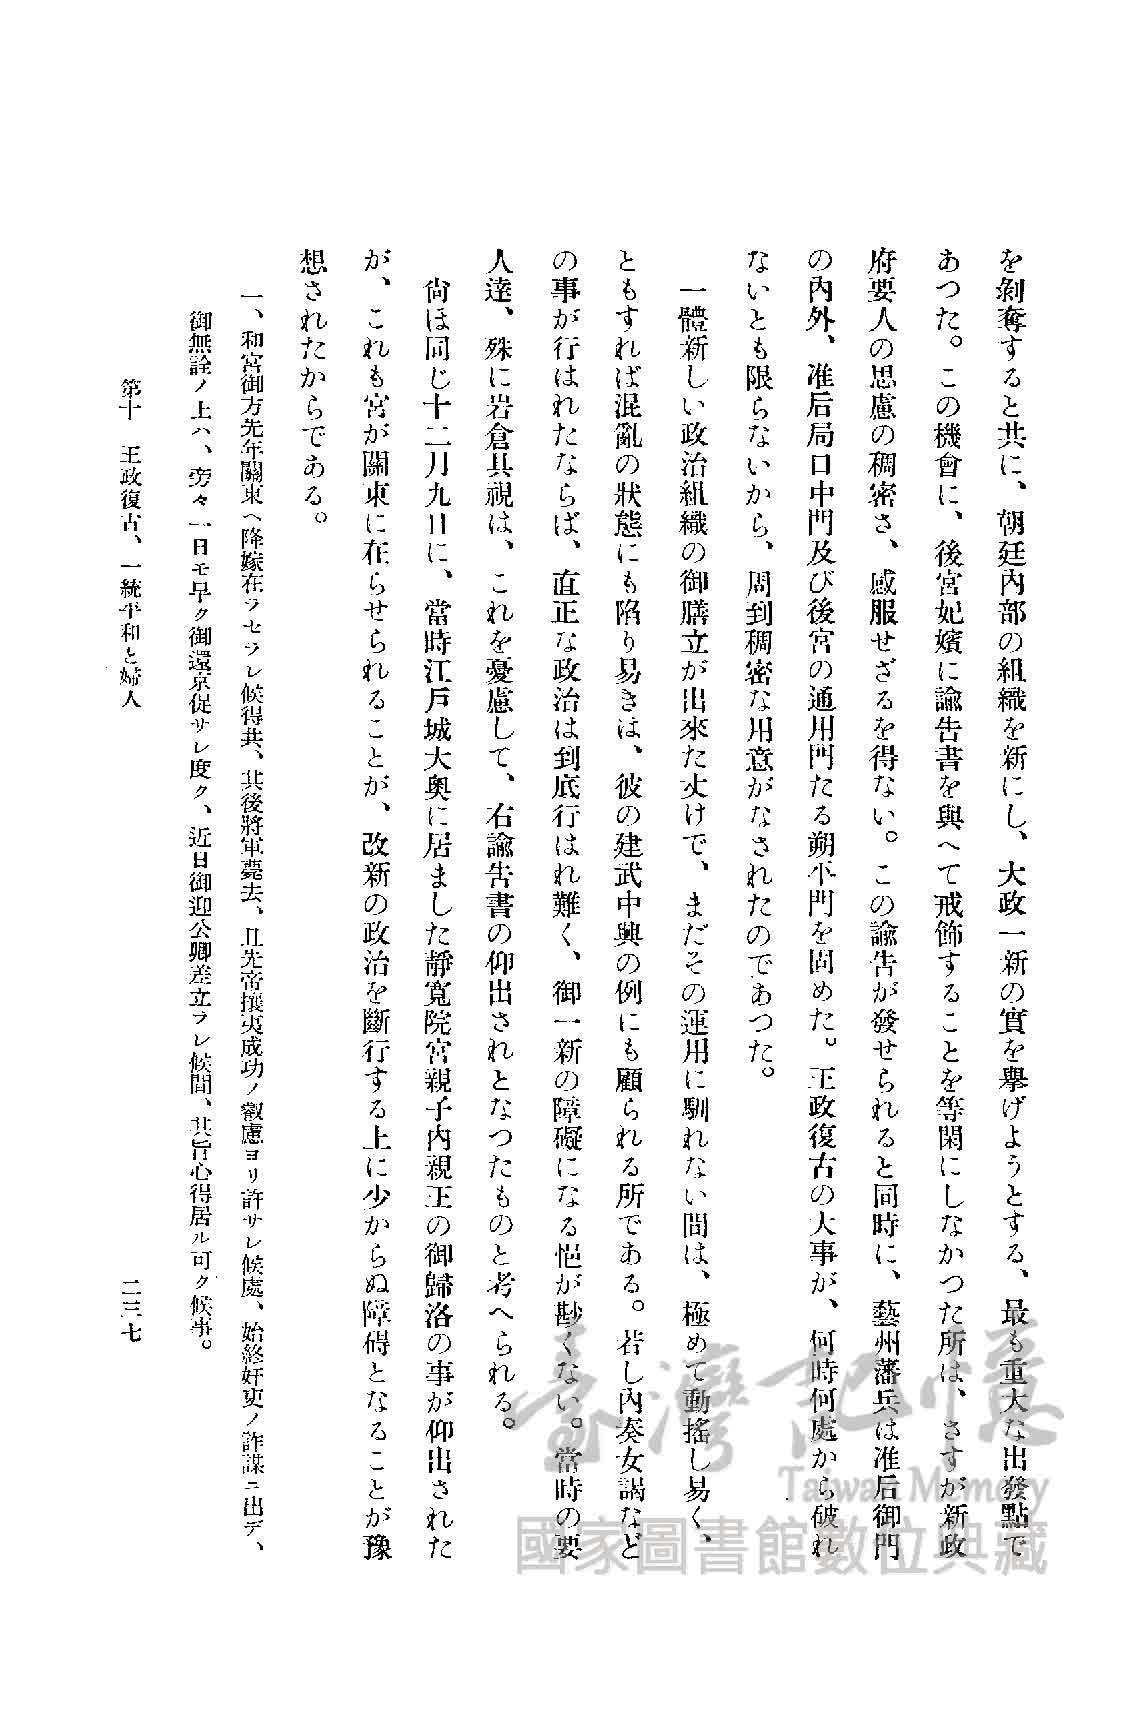 を剝奪すると共に、朝廷內部の組織を新にし、大政一新の實を擧げようとする、最も重大な出發點で
あつた。この機會に、後宮妃嬪に諭吿書を與へて戒飾することを等閑にしなかつた所は、さすが新政
府要人の思慮の稠密さ、感服せざるを得ない。この諭吿が發せられると同時に、藝州藩兵は准后御門
の內外、准后局口中門及び後宮の通用門たる朔平門を固めた。王政復古の大事が、何時何處から破れ
ないとも限らないから、周到稠密な用意がなされたのであつた。
一體新しい政治組織の御膳立が出來た丈けで、まだその運用に馴れない間は、極めて動搖し易く、
ともすれば混亂の狀態にも陷り易きは、彼の建武中興の例にも顧られる所である。若し內奏女謁など
の事が行はれたならば、直正な政治は到底行はれ難く、御一新の障礙になる悒が尠くない。當時の要
人達、殊に岩倉具視は、これを憂慮して、右諭吿書の仰出されとなつたものと考へられる。
尙ほ同じ十二月九日に、當時江戶城大奧に居ました靜寬院宮親子內親王の御歸洛の事が仰出された
が、これも宮が關東に在らせられることが、改新の政治を斷行する上に少からぬ障碍となることが豫
想されたからである。
一、和宮御方先年關東ヘ降嫁在ラセラレ候得共、其後將軍薨去、且先帝攘夷成功ノ叡慮ヨリ許サレ候處、始終奸吏ノ詐謀ニ出デ、
御無詮ノ上ハ、旁々一日モ早ク御還京促サレ度ク、近日御迎公卿差立ラレ候間、其旨心得居ル可ク候事。
第十　王政復古、一統平和と婦人
二三七
臺灣記憶
Taiwan Memory
國家圖書館數位典藏